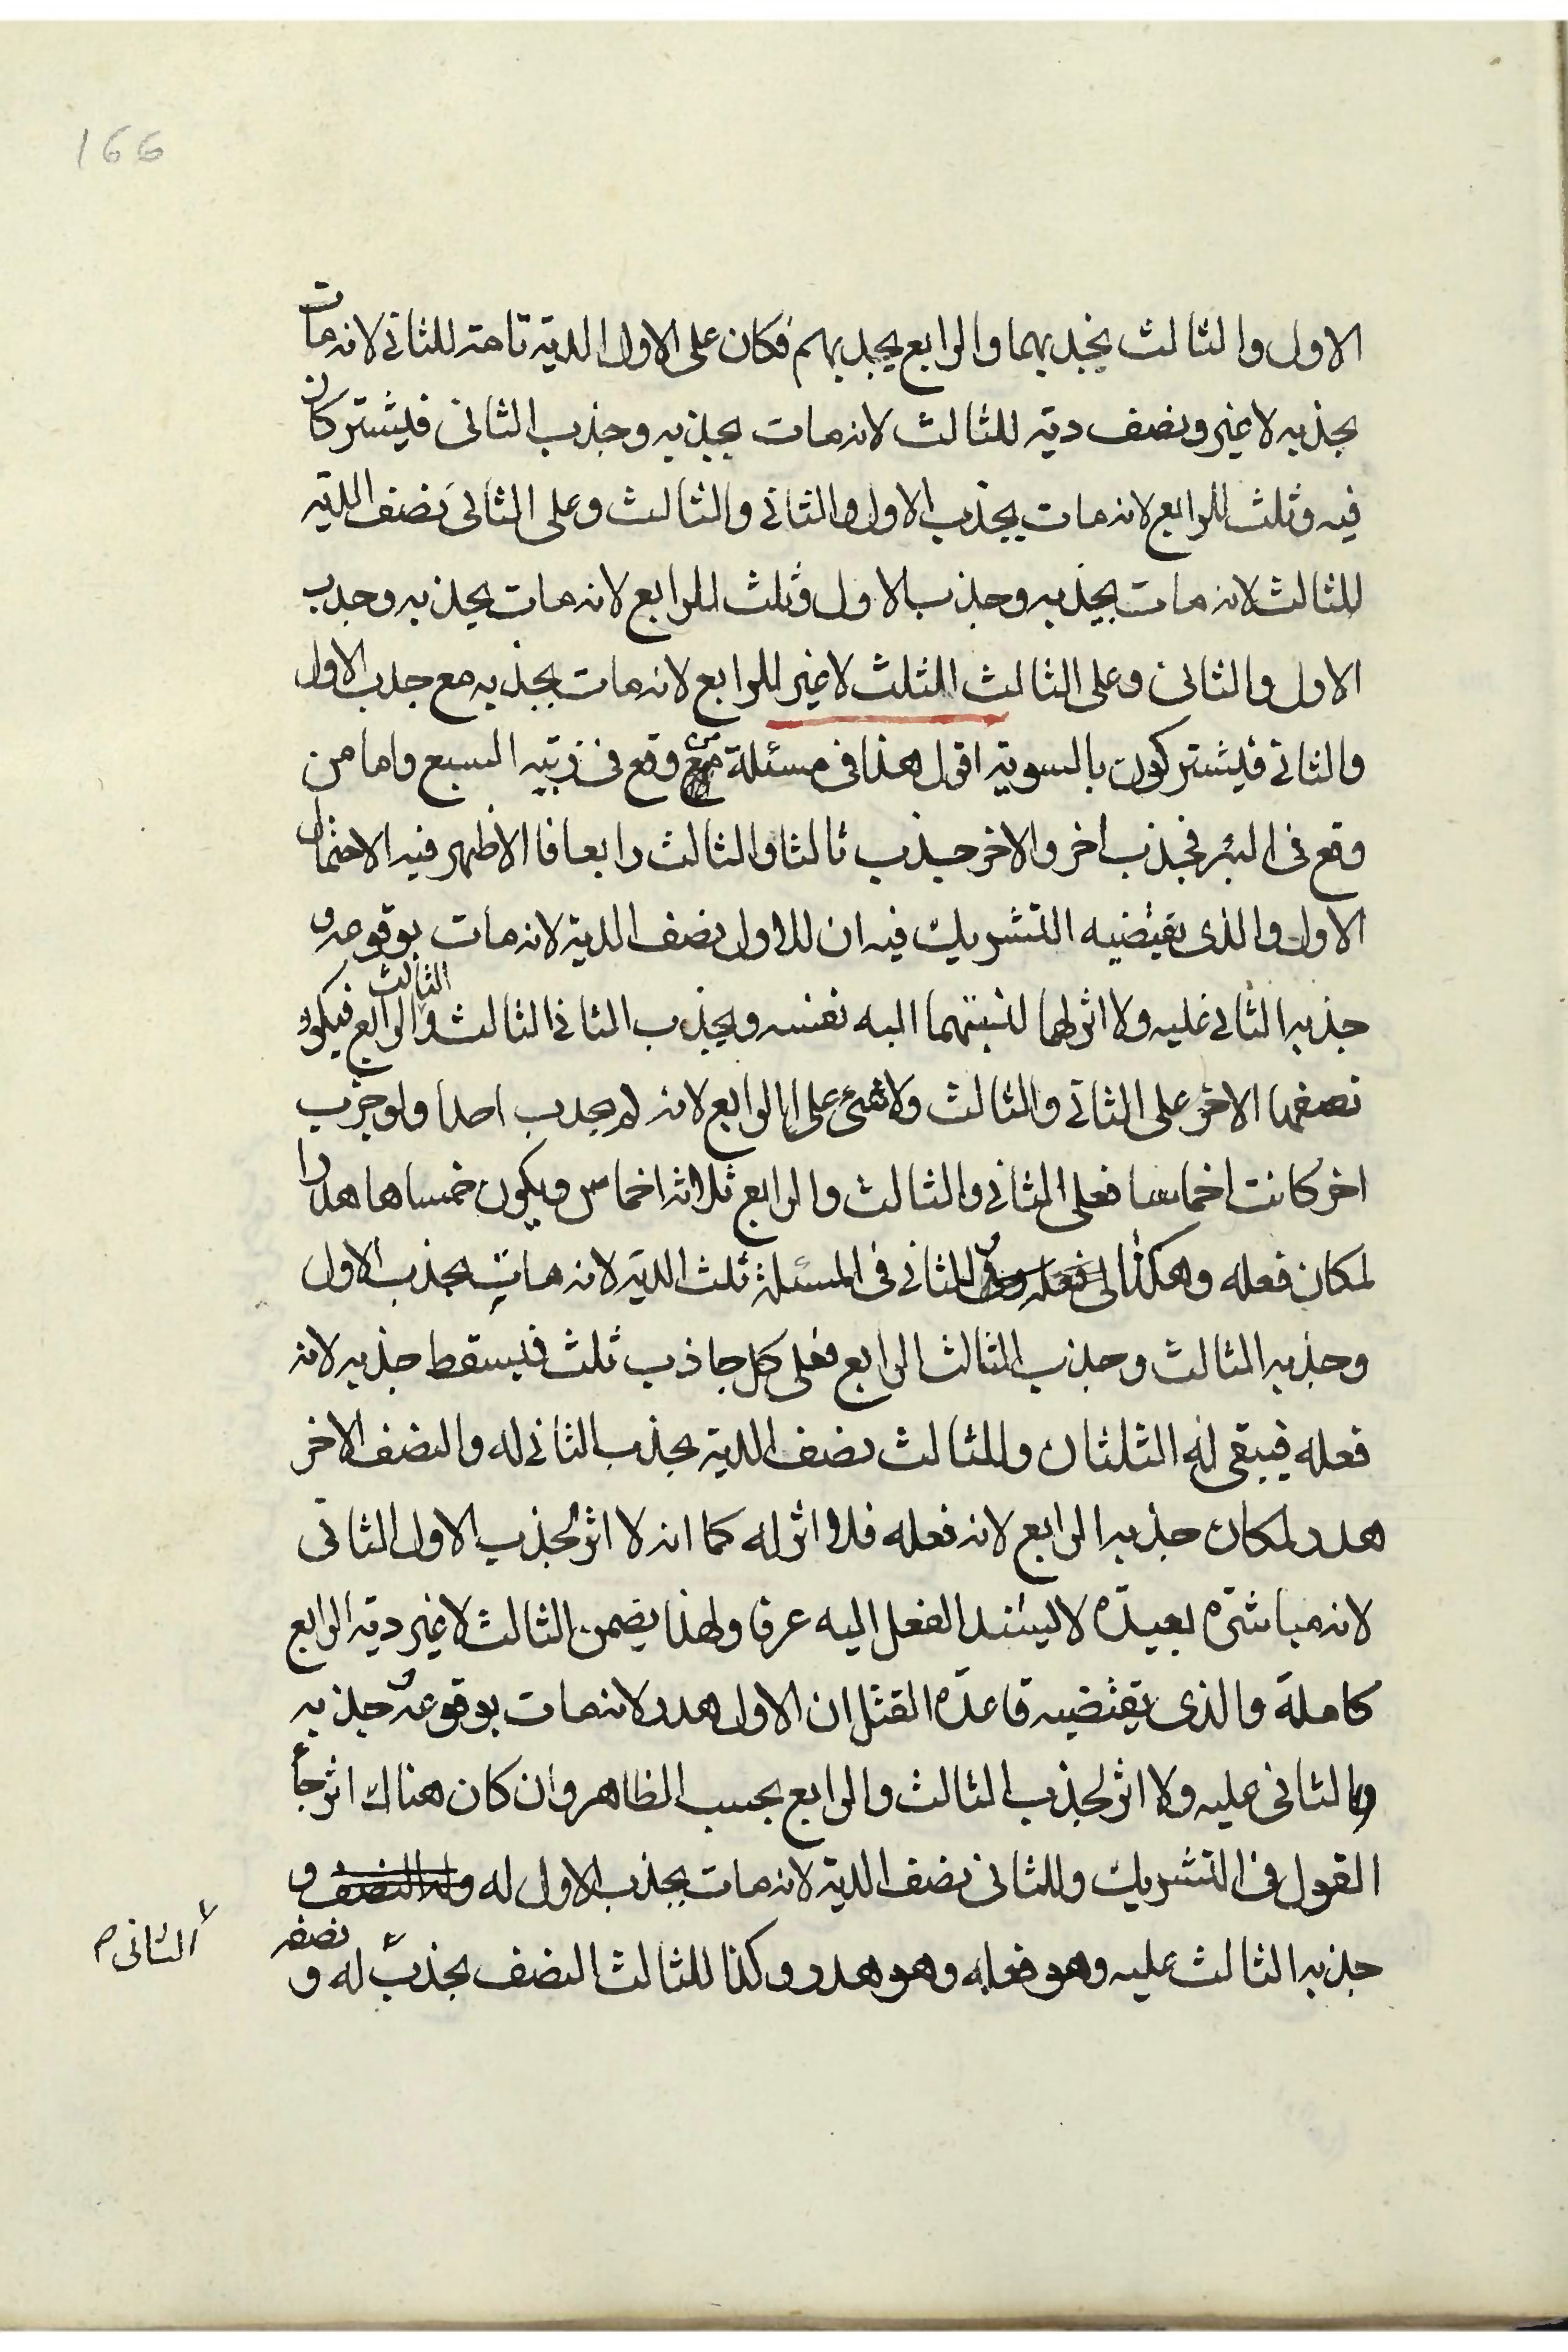 166
الاول والثالث بجذبهما والرابع بجذبهم فكان على الاول الدية تامة للثاني لانه مات
بجذبه لا غير ونصف دية للثالث لانه مات بجذبه وجذب الثانى فيشتركان
فيه وثلث للرابع لانه مات بجذب الاول والثاني والثالث وعلى الثانى نصف الدية
للثالث لانه مات بجذبه وجذب الاول وثلث للرابع لانه مات بجذبه وجذب
الاول والثانى وعلى الثالث الثلث لا غير للرابع لانه مات بجذبه مع جذب الاول
والثاني فيشتركون بالسوية اقول هذا فى مسئلة من وقع فى زبية السبع واما من
وقع فى البئر فجذب اخر والاخر جذب ثالثا والثالث رابعا فالاظهر فيه الاحتمال
الاول والذى يقتضيه التشريك فيه ان للاول نصف الدية لانه مات بوقوعه و
جذبه الثاني عليه ولا اثر لهما لنسبتهما اليه نفسه وبجذب الثاني الثالث والثالث الرابع فيكون
نصفها الاخر على الثاني والثالث ولا شئ على الرابع لانه لم يجذب احدا ولو جذب
اخر كانت اخماسا فعلى الثاني والثالث والرابع ثلاثة اخماس ويكون خمساها هدرا
لمكان فعله وهكذا وللثاني فى المسئلة ثلث الدية لانه مات بجذب الاول
وجذبه الثالث وجذب الثالث الرابع فعلى كل جاذب ثلث فيسقط جذبه لانه
فعله فيبقى له الثلثان وللثالث نصف الدية بجذب الثاني له والنصف الاخر
هدر لمكان جذبه الرابع لانه فعله فلا اثر له كما انه لا اثر لجذب الاول الثانى
لانه مباشرة بعيدة لا يسند الفعل اليه عرفا ولهذا يضمن الثالث لا غير دية الرابع
كاملة والذى يقتضيه قاعدة القتل ان الاول هدر لانه مات بوقوعه و جذبه
الثانى عليه ولا اثر لجذب الثالث والرابع بحسب الظاهر وان كان هناك اثر جاء
القول فى التشريك وللثانى نصف الدية لانه مات بجذب الاول له وله النصف و
جذبه الثالث عليه وهو فعله وهو هدر وكذا للثالث النصف بجذب له و نصفه
الثانى م